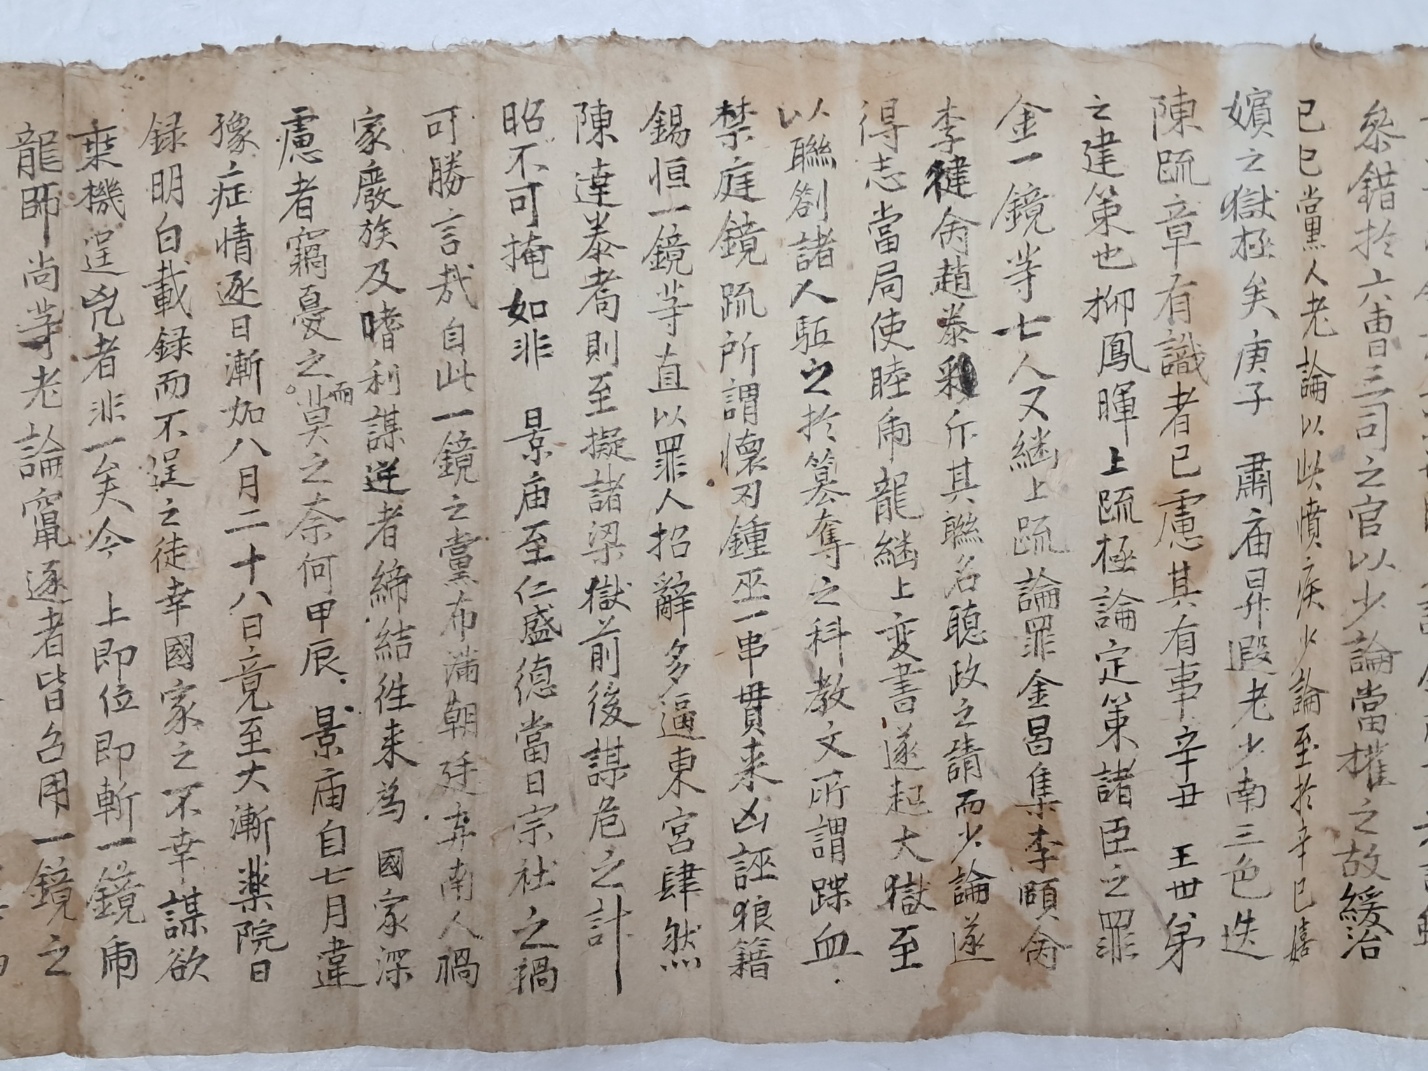 叅錯扵六曺三司之官以少論當權之故緩治
已巳黨人老論以此憤疾少論至扵辛巳禧
嬪之獄極矣庚子 肅庙昇遐老少南三色迭
陳䟽章有識者已慮其有事辛丑 王世弟
之建策也柳鳳暉上䟽極論定策諸臣之罪
金一鏡䓁七人又継上䟽論罪金昌集李頤命
李健命趙泰采斥其聯名聽政之請而少論遂
得志當局使睦虎龍継上変書遂起大獄至
以聯劄諸人駈之扵簒奪之科教文所謂蹀血
禁庭鏡䟽所謂懷刃鍾巫一串貫来凶誣狼籍
錫恒一鏡䓁直以罪人招辭多逼東宮肆然
陳達泰耉則至擬諸梁獄前後謀危之計
昭不可掩如非 景庙至仁盛德當日宗社之禍
可勝言㢤自此一鏡之黨布滿朝廷弃南人禍
家廢族及嗜利謀逆者締結徃来為國家深
慮者竊憂之而莫之奈何甲辰 景庙自七月違
豫症情逐日漸加八月二十八日竟至大漸藥院日
録明白載録而不逞之徒幸國家之不幸謀欲
乗機逞兇者非一矣今 上即位即斬一鏡虎
龍師尚䓁老論竄逐者皆召用一鏡之